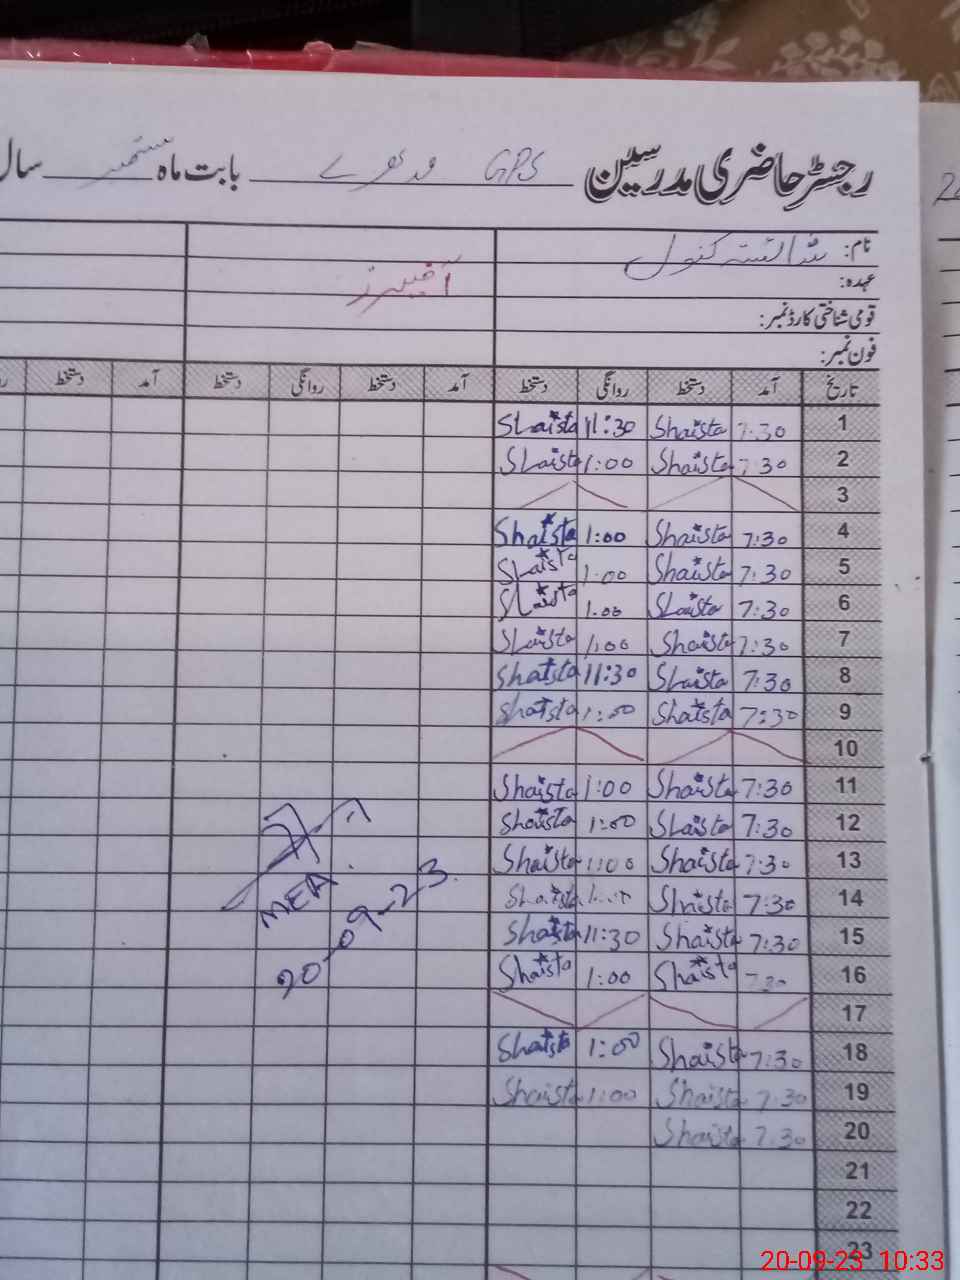 رجسٹر حاضری مدرسین GPS بابت ماہ ستمبر سال
نام: شائستہ کنول
آفیسرز
عہدہ:
قومی شناختی کارڈ نمبر:
فون نمبر:
تاریخ آمد دستخط روانگی دستخط آمد دستخط روانگی دستخط آمد دستخط
1 7:30 Shaista 11:30 Shaista
2 7:30 Shaista 1:00 Shaista
3
4 7:30 Shaista 1:00 Shaista
5 7:30 Shaista 1:00 Shaista
6 7:30 Shaista 1:00 Shaista
7 7:30 Shaista 1:00 Shaista
8 7:30 Shaista 11:30 Shaista
9 7:30 Shaista 1:00 Shaista
10
11 7:30 Shaista 1:00 Shaista
12 7:30 Shaista 1:00 Shaista
13 7:30 Shaista 1:00 Shaista
14 7:30 Shaista Shaista
15 7:30 Shaista 11:30 Shaista
16 7:30 Shaista 1:00 Shaista
17
18 7:30 Shaista 1:00 Shaista
19 7:30 Shaista 1:00 Shaista
20 7:30 Shaista
21
22
23
MEA
20-09-23
20-09-23 10:33